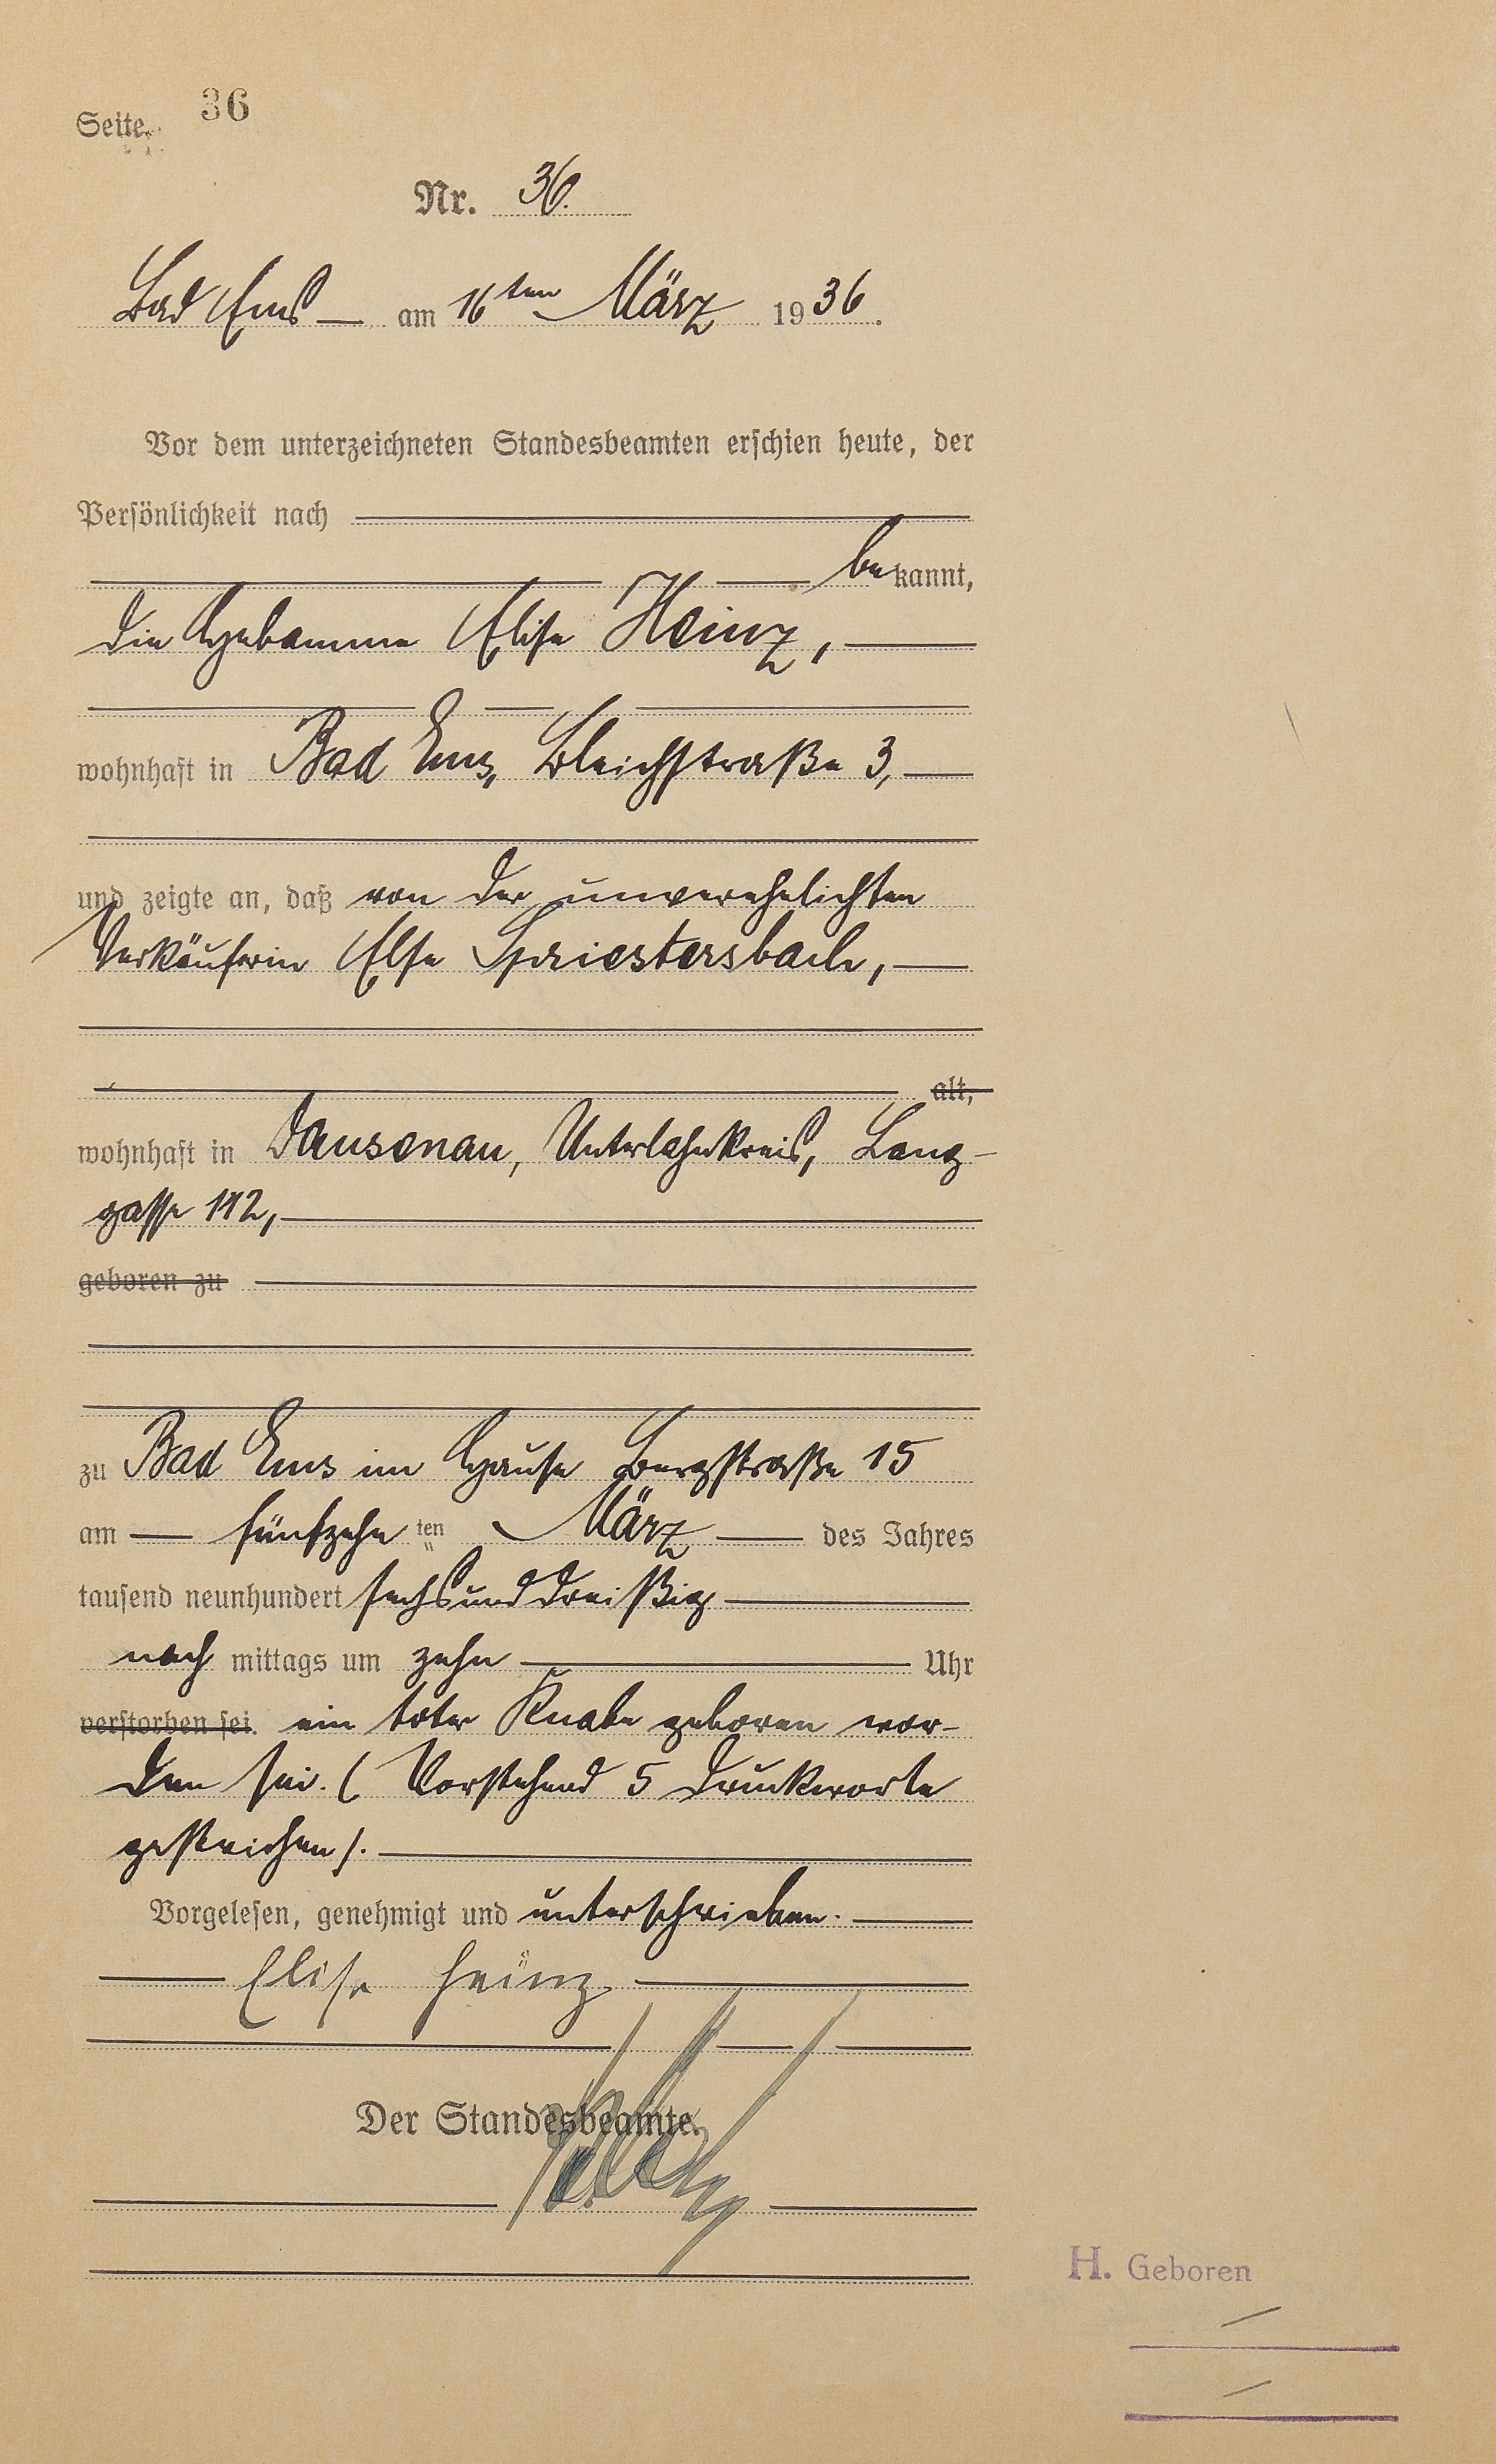 Seite 36
Nr. 36.
Bad Ems — am 16ten März 1936.
Vor dem unterzeichneten Standesbeamten erschien heute, der
Persönlichkeit nach
bekannt,
die Hebamme Elise Heinz,
wohnhaft in Bad Ems, Bleichstraße 3,
und zeigte an, daß von der unverehelichten
Verkäuferin Else Spriestersbach,
alt,
wohnhaft in Dausenau, Unterlahnkreis, Lang-
gasse 112,
geboren zu
zu Bad Ems im Hause Bergstraße 15
am — fünfzehnten März — des Jahres
tausend neunhundert sechsunddreißig
nachmittags um zehn Uhr
verstorben sei. ein toter Knabe geboren wor-
den sei. (Vorstehend 5 Druckworte
gestrichen).
Vorgelesen, genehmigt und unterschrieben.
Elise Heinz
Der Standesbeamte.
H. Geboren